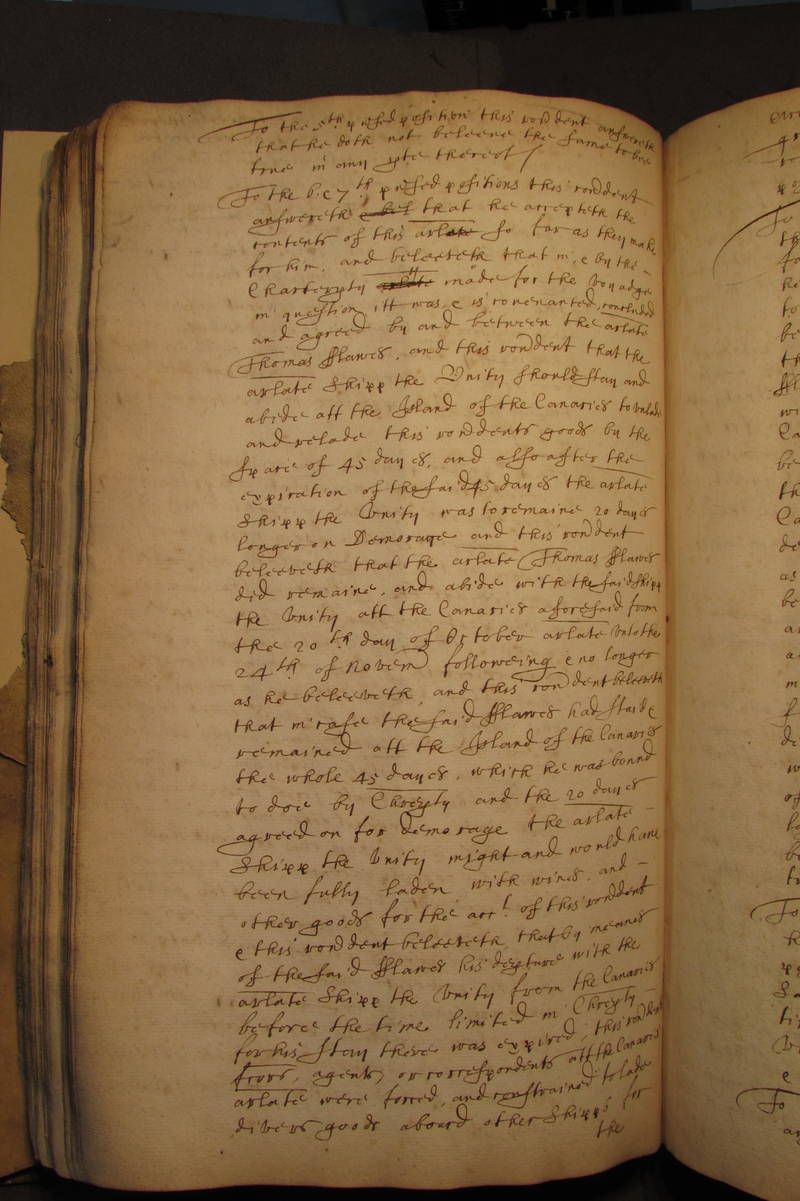 To the 5th posed position this rondent answereth
that he doth not beleeve the same to bee
true in any pte thereof /
To the 6. e 7th posed positions this rondent
answereth that he accepteth the
contents of this arlate so far as they make
for him, and beleeveth that in, e by the
Charterpty made for the voyadge
in question itt was, e is covenanted, concluded
and agreed by and between the arlate
Thomas fflawes, and this rondent that the
arlate Shipp the Unity should stay and
abide att the Island of the Canaries to unlade
and relade this rondents goods by the
space of 45 dayes, and also after the
expiration of the said 45 dayes the arlate
Shipp the Unity was to remaine 20 dayes
longer on Demorage and this rondent
beleeveth that the arlate Thomas fflawes
did remaine, and abide with the said shipp
the Unity att the Canaries aforesaid from
the 20th day of October arlate unto the
24th of Novem following e no longer
as he beleeveth, and this rondent beleeveth
that in case the said fflawes had staid e
remained att the Island of the Canaries
the whole 45 dayes, which he was bound
to doe by Chrepty and the 20 dayes
agreed on for demorage the arlate
Shipp the Unity might and would have
been fully laden with wines, and
other goods for the acct. of this rondent
e this rondent beleeveth, that by meanes
of the said fflawes his depture with the
arlate Shipp the Unity from the Canaries
before the time limited in Chrepty
for his stay there was expired, this rondents
fctors, agents, or correspondents att the Canaries
arlate were forced, and constrained to lade
divers goods aboard other Shipps for
the